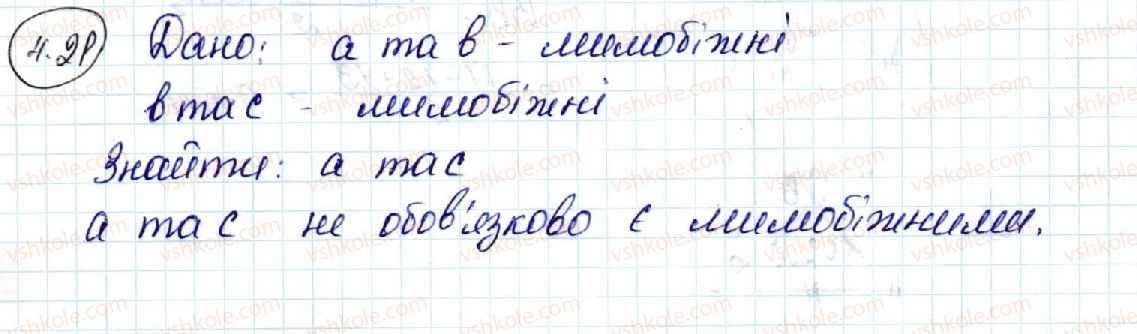 4.21 Дано: а та в - мимобіжні
в та с - мимобіжні
Знайти: а та с
а та с не обов'язково є мимобіжними.